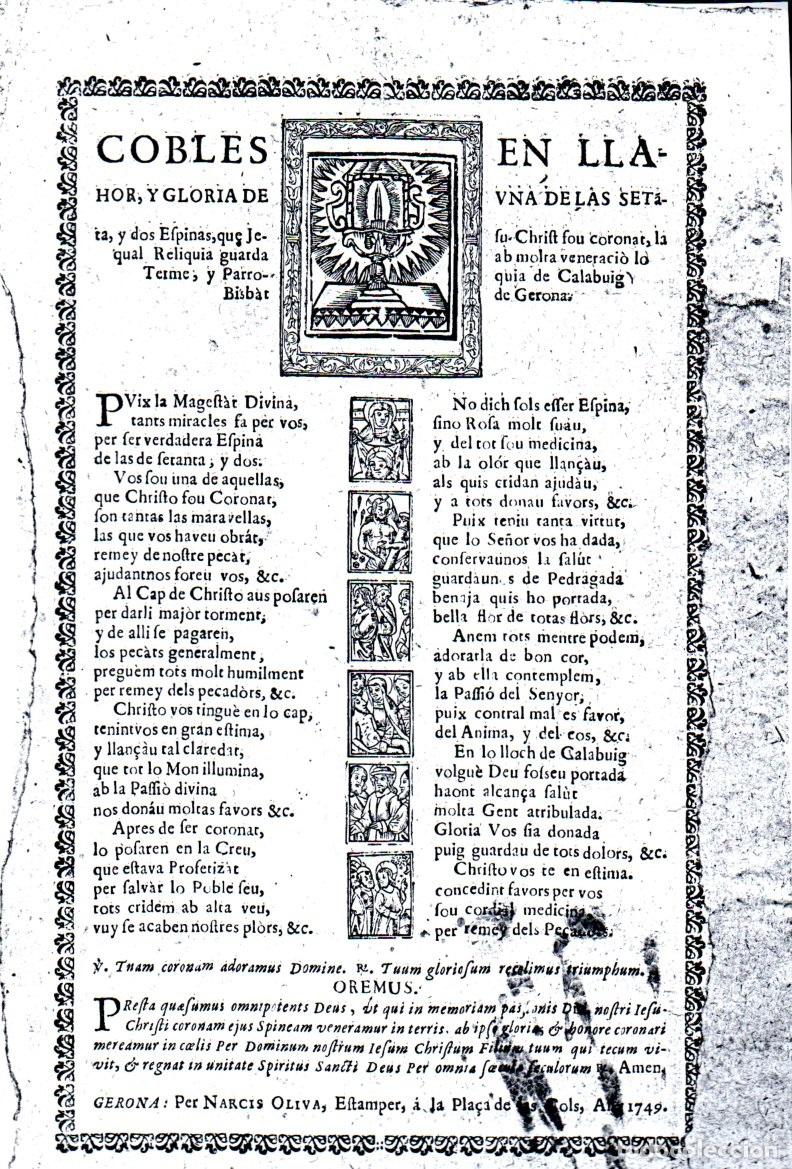 COBLES EN LLA-
HOR, Y GLORIA DE VNA DE LAS SETã-
ta, y dos Eſpinas, que Je- ſu-Chriſt fou coronat, la
qual Reliquia guarda ab molta veneraciò lo
Terme, y Parro- quia de Calabuig
Bisbàt de Gerona.
PVix la Mageſtàt Divina,
tants miracles fa per vos,
per ſer verdadera Eſpina
de las de ſetanta, y dos.
Vos ſou una de aquellas,
que Chriſto fou Coronat,
ſon tantas las maravellas,
las que vos haveu obràt,
remey de noſtre pecàt,
ajudantnos foreu vos, &c.
Al Cap de Chriſto aus poſaren
per darli majòr torment,
y de alli ſe pagaren,
los pecàts generalment,
preguèm tots molt humilment
per remey dels pecadòrs, &c.
Chriſto vos tinguè en lo cap,
tenintvos en gran eſtima,
y llançàu tal claredat,
que tot lo Mon illumina,
ab la Paſſiò divina
nos donáu moltas favors &c.
Apres de ſer coronat,
lo poſaren en la Creu,
que eſtava Profetizàt
per ſalvàr lo Poble ſeu,
tots cridem ab alta veu,
vuy ſe acaben noſtres plòrs, &c.
No dich ſols eſſer Eſpina,
ſino Roſa molt ſuáu,
y del tot ſou medicina,
ab la olór que llançàu,
als quis cridan ajudàu,
y a tots donau favors, &c.
Puix teniu tanta virtut,
que lo Señor vos ha dada,
conſervaunos la ſalùt
guardaun s de Pedragada
benaja quis ho portada,
bella flor de totas flòrs, &c.
Anem tots mentre podem,
adorarla de bon cor,
y ab ella contemplem,
la Paſſió del Senyor,
puix contral mal es favor,
del Anima, y del cos, &c.
En lo lloch de Calabuig
volguè Deu foſſeu portada
haont alcança ſalùt
molta Gent atribulada.
Gloria Vos ſia donada
puig guardau de tots dolors, &c.
Chriſto vos te en eſtima.
concedint favors per vos
ſou cordial medicina
per remey dels Pecadors.
℣. Tuam coronam adoramus Domine. ℟. Tuum glorioſum recolimus triumphum.
OREMUS.
PReſta quæſumus omnipotents Deus, ut qui in memoriam paſſionis Dñi noſtri Ieſu-
Chriſti coronam ejus Spineam veneramur in terris. ab ipſo gloria, & honore coronari
mereamur in cœlis Per Dominum noſtrum Ieſum Chriſtum Filium tuum qui tecum vi-
vit, & regnat in unitate Spiritus Sancti Deus Per omnia ſæcula ſeculorum ℟. Amen.
GERONA: Per NARCIS OLIVA, Eſtamper, á la Plaça de las Cols, Añ 1749.
todocoleccion